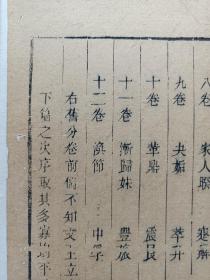 八卷 家人睽 蹇解
九卷 夬姤 萃升
十卷 革鼎 震艮
十一卷 漸歸妹 豐旅
十二卷 渙節 中孚
右舊分卷前儒不知文王立
下篇之次序取其多寡均平